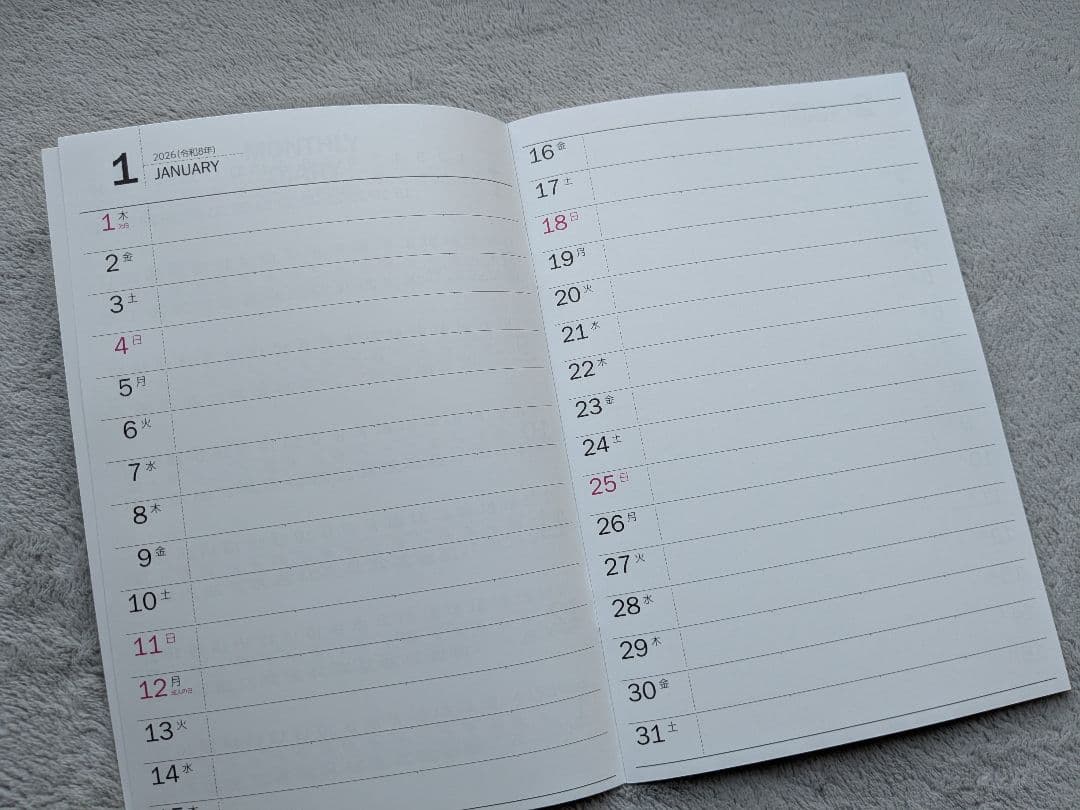 1
2026(令和8年)
JANUARY
1 木
元日
2 金
3 土
4 日
5 月
6 火
7 水
8 木
9 金
10 土
11 日
12 月
成人の日
13 火
14 水
16 金
17 土
18 日
19 月
20 火
21 水
22 木
23 金
24 土
25 日
26 月
27 火
28 水
29 木
30 金
31 土